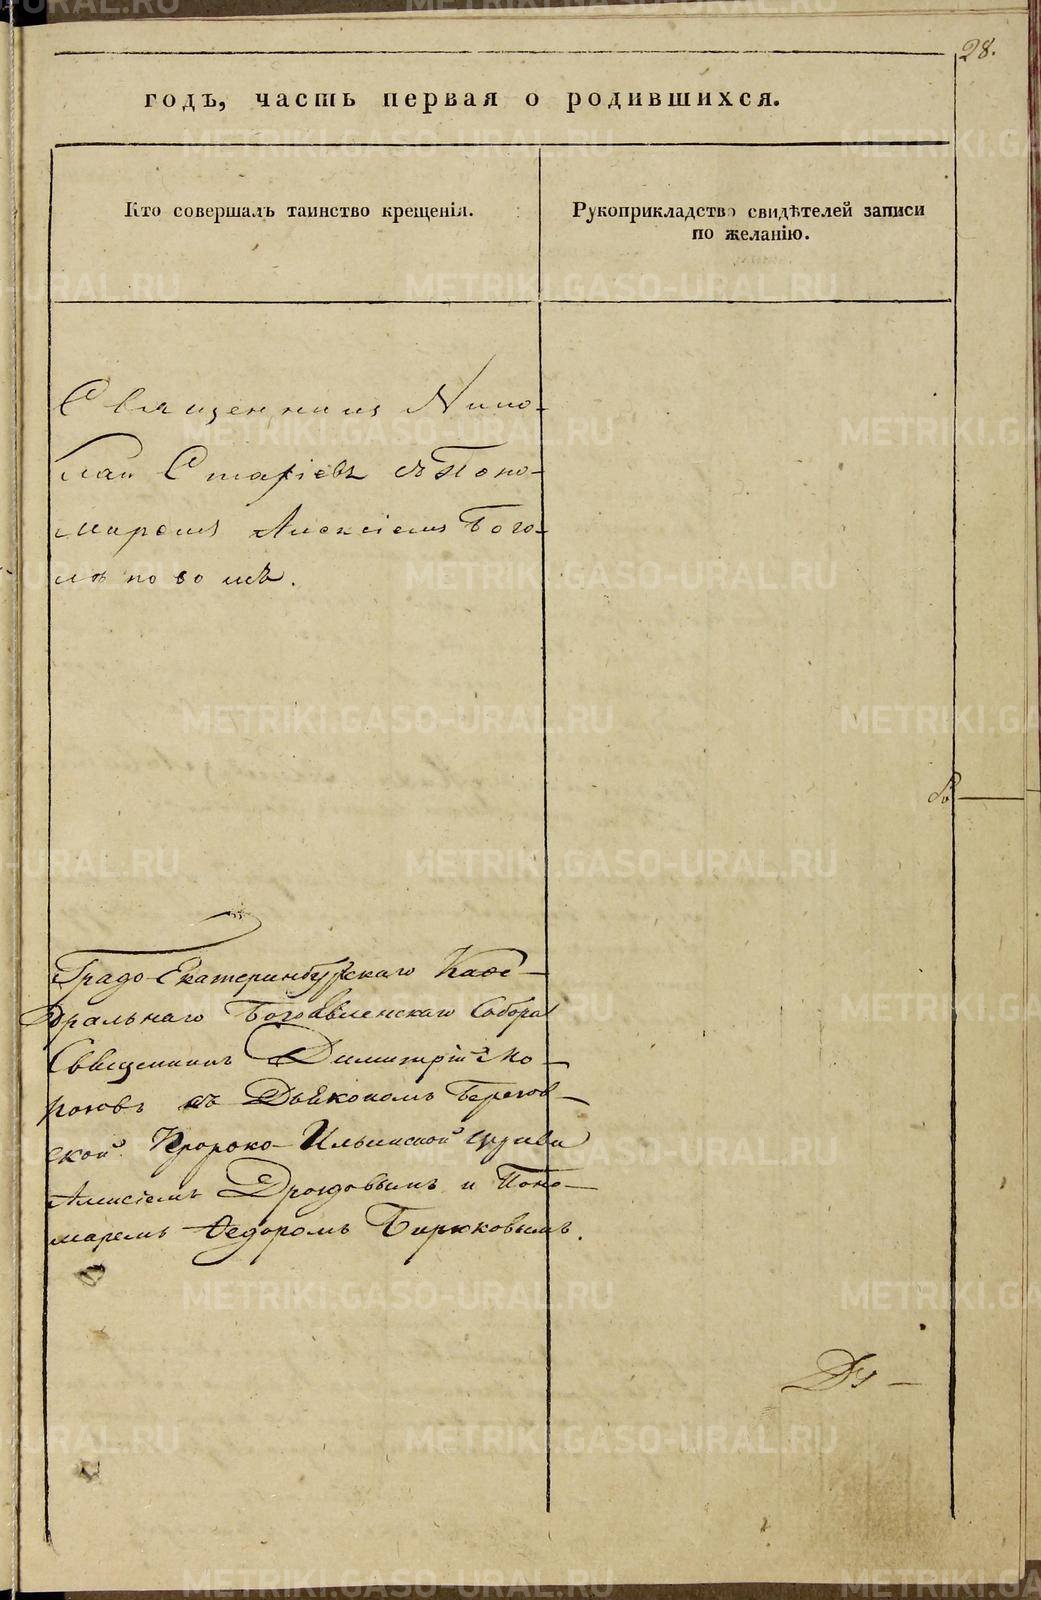 28.
годъ, часть первая о родившихся.
Кто совершалъ таинство крещенія.
Рукоприкладство свидѣтелей записи
по желанію.
Священникъ Нико-
лай Стахіевъ съ Поно-
маремъ Алексіемъ Бого-
лѣповомъ.
Градо-Екатеринбургскаго Каѳе-
дральнаго Богоявленскаго Собора
Священникъ Димитрій
съ Дьякономъ Березов-
ской Пророко-Ильинской церкви
Алексіемъ Дроздовымъ и Поно-
маремъ Ѳедоромъ Бирюковымъ.
METRIKI.GASO-URAL.RU